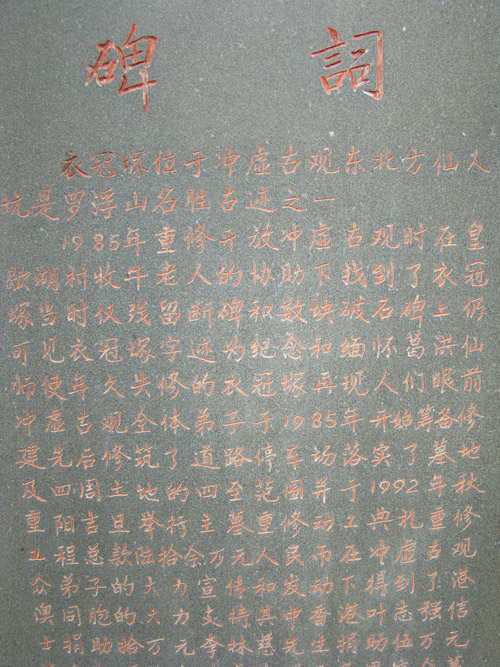 碑 詞
衣冠塚位于冲虚古观东北方仙人
坑是罗浮山名胜古迹之一
1985年重修开放冲虚古观时在皇
歇湖村牧牛老人的协助下找到了衣冠
塚当时仅残留断碑和数块破石碑上仍
可见衣冠塚字迹为纪念和缅怀葛洪仙
师使年久失修的衣冠塚再现人们眼前
冲虚古观全体弟子于1985年开始筹备修
建先后修筑了道路停车场落实了墓地
及四周土地的四至范围并于1992年秋
重阳吉旦举行主墓重修动工典礼重修
工程总款陆拾余万元人民币在冲虚古观
众弟子的大力宣传和发动下得到了港
澳同胞的大力支持其中香港叶志强信
士捐助拾万元李林慈先生捐助伍万元